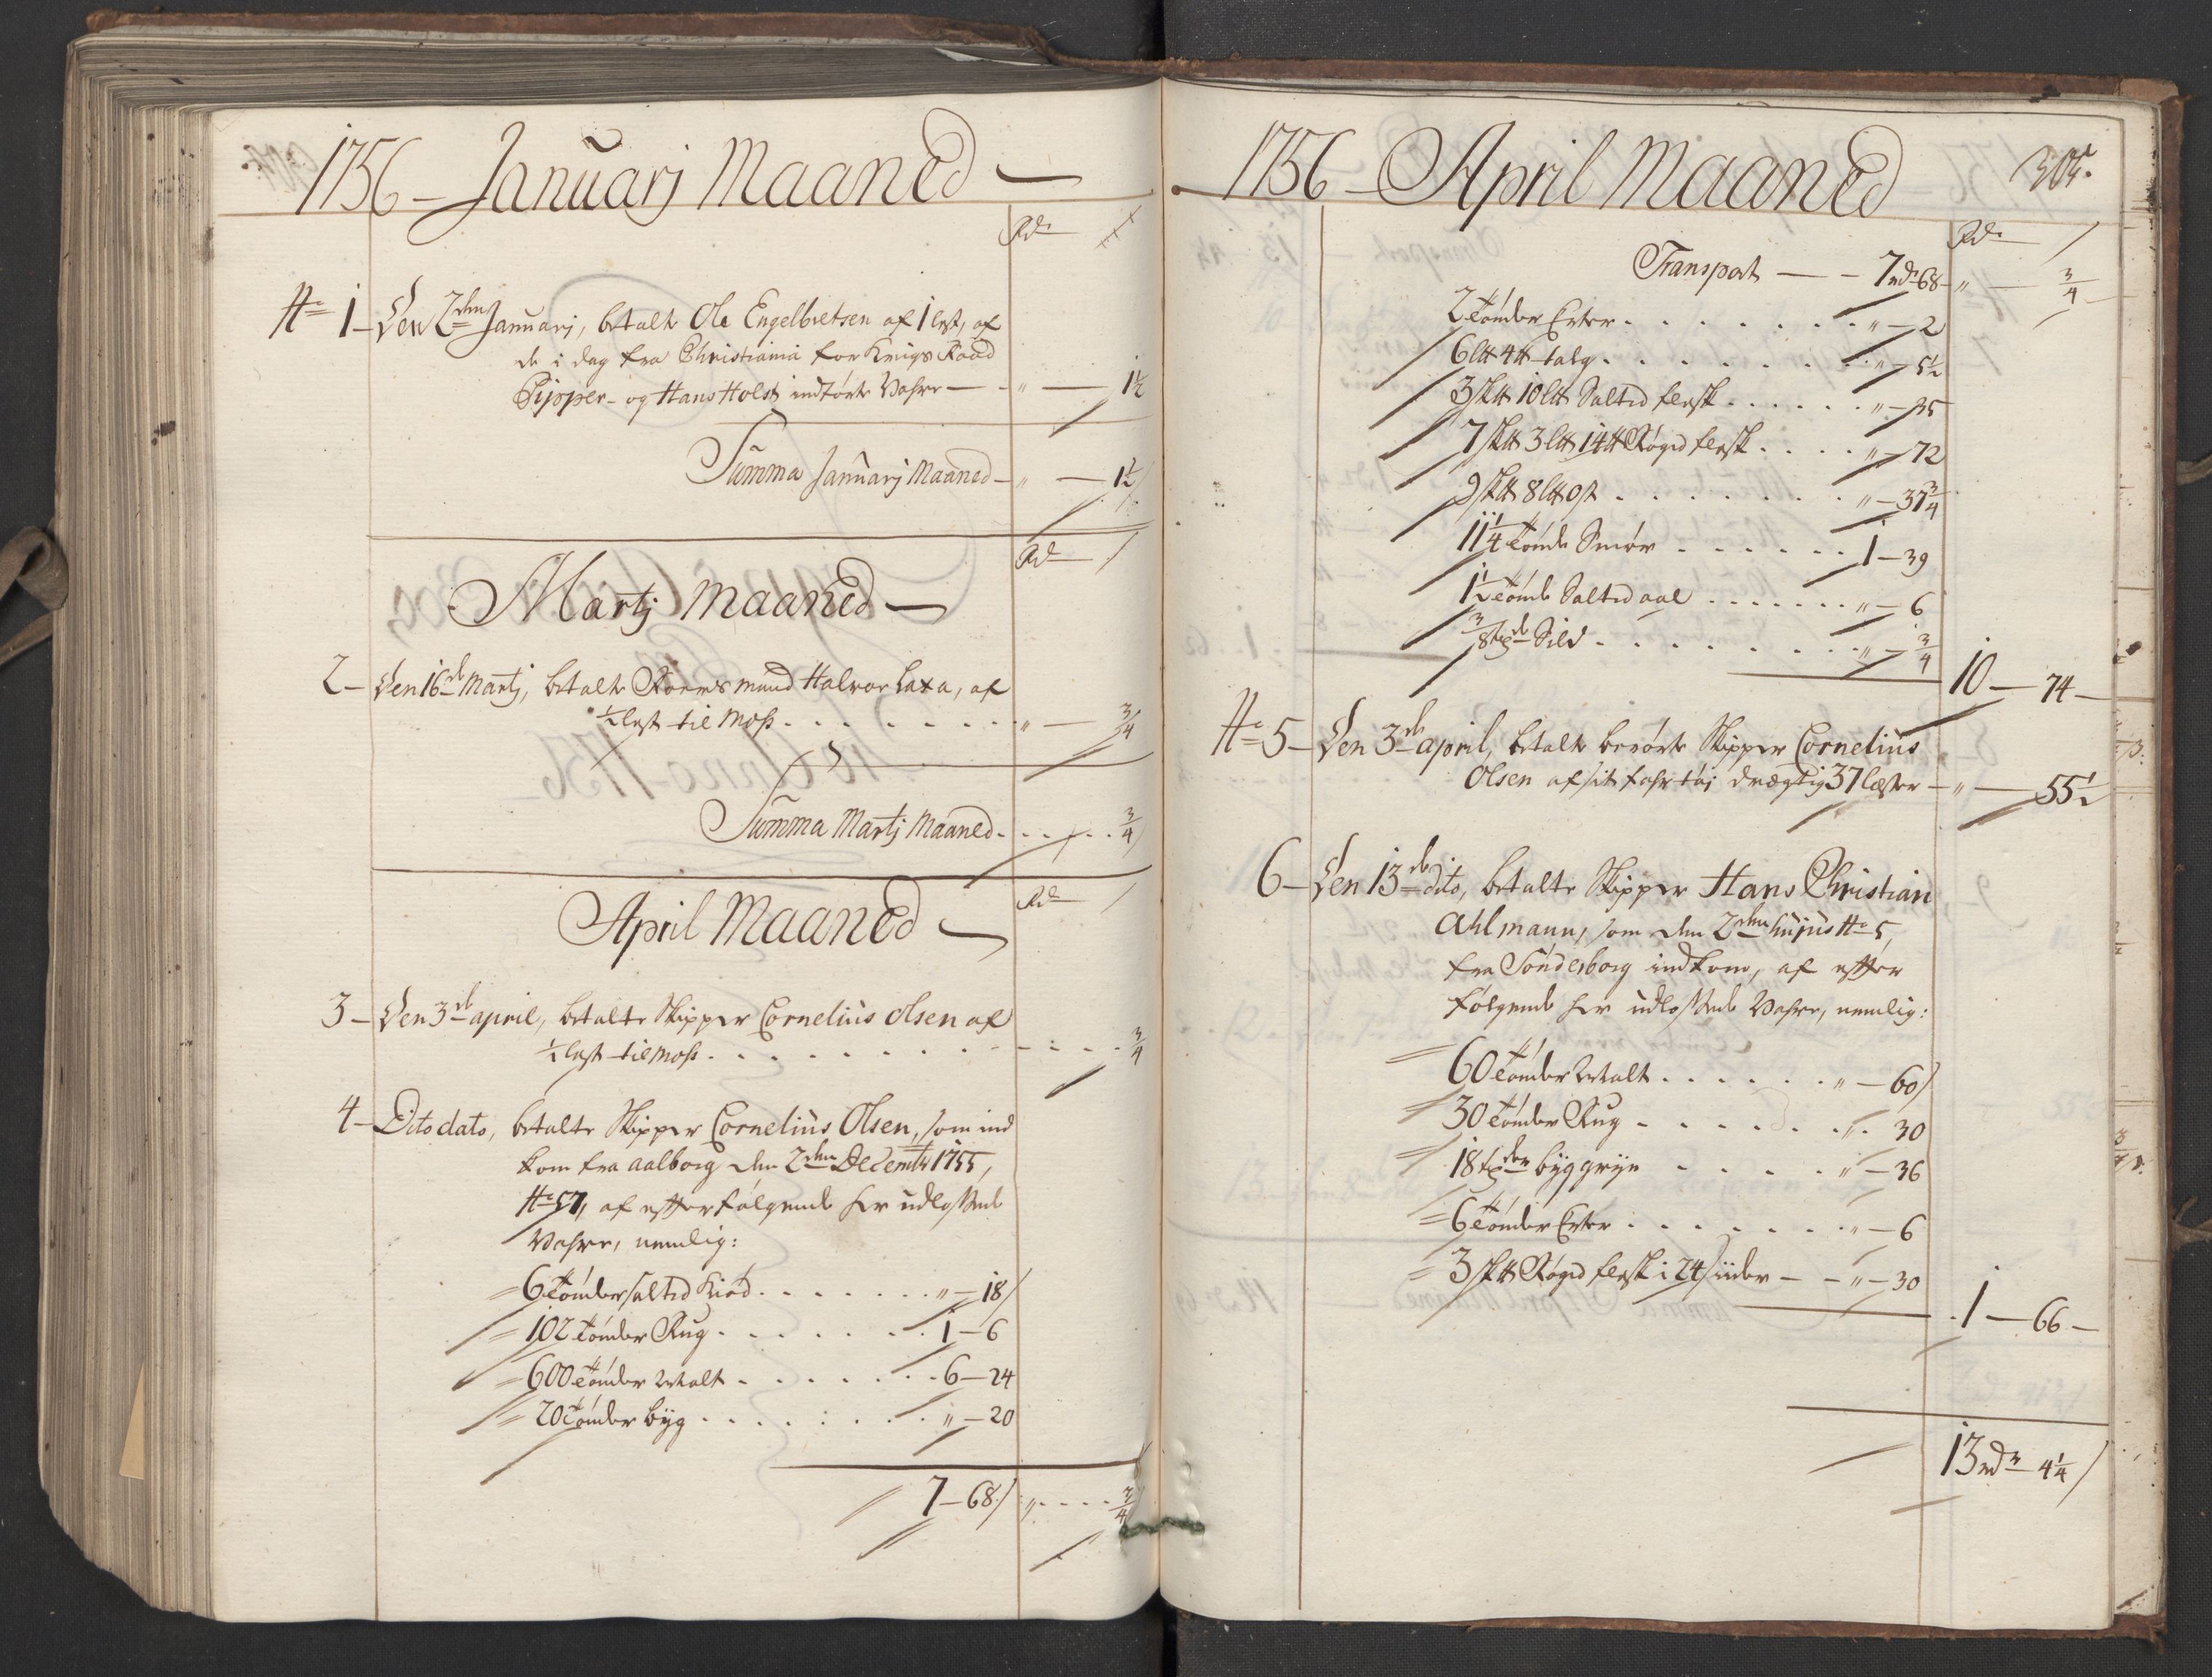 1756 – Januarj Maaned –
Rdr ſ
No 1 – Den 2den Januarj, betalte Ole Engelbretsen af 1 lest, af
de i dag fra Christiania for Krigs Raad
Pipper - og Hans Holst indførte Vahre — „ — 1½
Summa Januarj Maaned – „ — 1½
Rdr ſ
Martj Maaned –
2 – Den 16de Martj, betalte Roersmand Halvor Laxa, af
½ lest til Moss . . . . . . . „ — ¾
Summa Martj Maaned . . . . . ¾
Rdr ſ
April Maaned –
3 – Den 3de april, betalte Skipper Cornelius Olsen af
½ lest til Moss . . . . . . . . . . . ¾
4 – Dito dato, betalte Skipper Cornelius Olsen, som ind
kom fra Aalborg den 2den Decembr 1755,
No 57, af efterfølgende her udlossede
Vahre, nemlig:
6 Tønder saltid Kiød . . . . . . . „ – 18
102 Tønder Rug . . . . . . . 1 – 6
600 Tønder Malt . . . . . . . 6 – 24
20 Tønder byg . . . . . . . „ – 20
7 – 68 „ . . . . ¾
1756 – April Maaned
305.
Rdr ſ
Transport — – 7rdr 68 – „ — ¾
2 Tønder Erter . . . . . . . „ – 2
6 L℔ 4 ℔ talg . . . . . . . „ – 5½
3 sk℔ 10 L℔ Saltid flesk . . . . . . „ – 35
7 sk℔ 3 L℔ 14 ℔ Røgid flesk . . . . „ – 72
9 sk℔ 8 L℔ ost . . . . . . . „ – 37¾
11¼ Tønde Smør . . . . . . 1 – 39
1½ Tønde Saltid aal . . . . . . . „ – 6
¾ Tønde Sild . . . . . . . . „ – ¾
10 — 74 –
No 5 – Den 3de april, betalte berørte Skipper Cornelius
Olsen af sit fahrtøi drægtig 37 læster – „ — 55½
6 – Den 13de dito, betalte Skipper Hans Christian
Ahlmann, som den 2den hujus No 5,
fra Sønderborg indkom, af efter
følgende her udlossede Vahre, nemlig:
60 Tønder Malt . . . . . . „ – 60
30 Tønder Rug . . . . . . . „ . 30
18 Tønder byggryn . . . . . „ – 36
6 Tønder Erter . . . . . . . „ – 6
3 sk℔ Røgid flesk i 24 siider – – „ – 30
1 — 66 –
13 rdr – 4¼